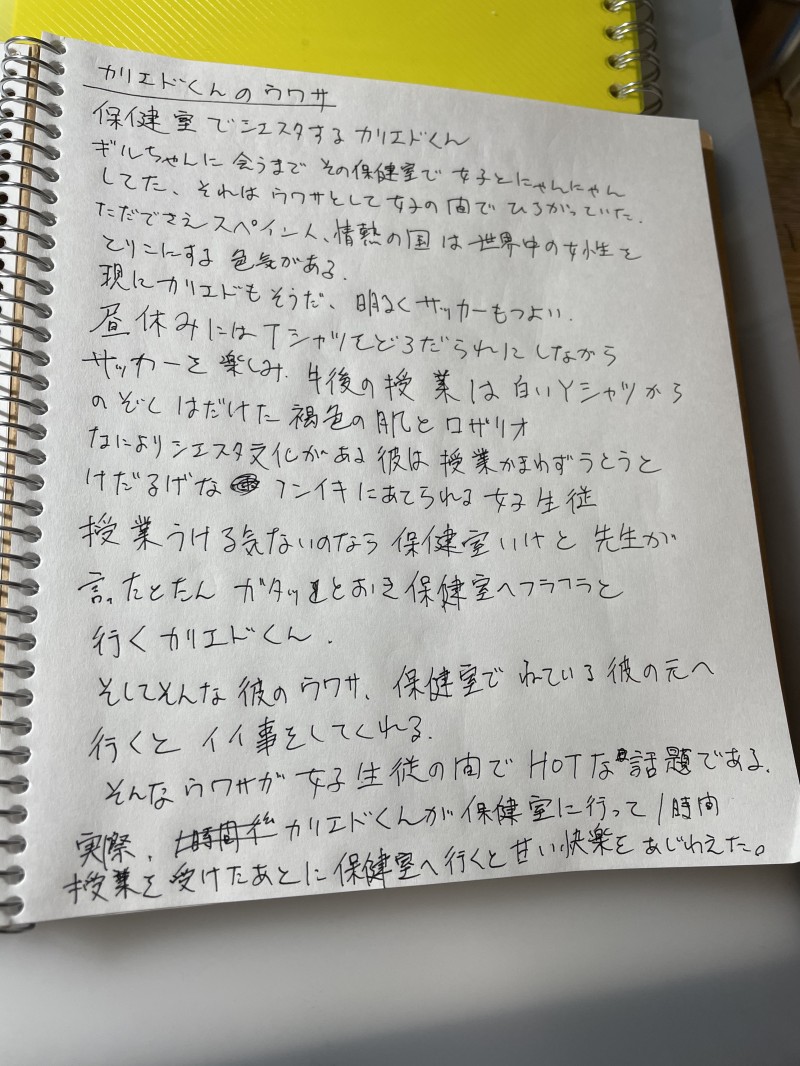 カリエドくんのウワサ
保健室でシエスタするカリエドくん
ギルちゃんに会うまでその保健室で女子とにゃんにゃん
してた、それはウワサとして女子の間でひろがっていた.
ただでさえスペイン人、情熱の国は世界中の女性を
とりこにする色気がある.
現にカリエドもそうだ、明るくサッカーもつよい.
昼休みにはTシャツをどろだらけにしながら
サッカーを楽しみ、午後の授業は白いYシャツから
のぞくはだけた褐色の肌とロザリオ
なによりシエスタ文化がある彼は授業かまわずうとうと
けだるげな フンイキにあてられる女子生徒
授業うける気ないのなら保健室いけと先生が
言ったとたん ガタッとおき保健室へフラフラと
行くカリエドくん.
そしてそんな彼のウワサ、保健室でねている彼の元へ
行くとイイ事をしてくれる.
そんなウワサが女子生徒の間でHOTな話題である.
実際、カリエドくんが保健室に行って1時間
授業を受けたあとに保健室へ行くと甘い快楽をあじわえた。